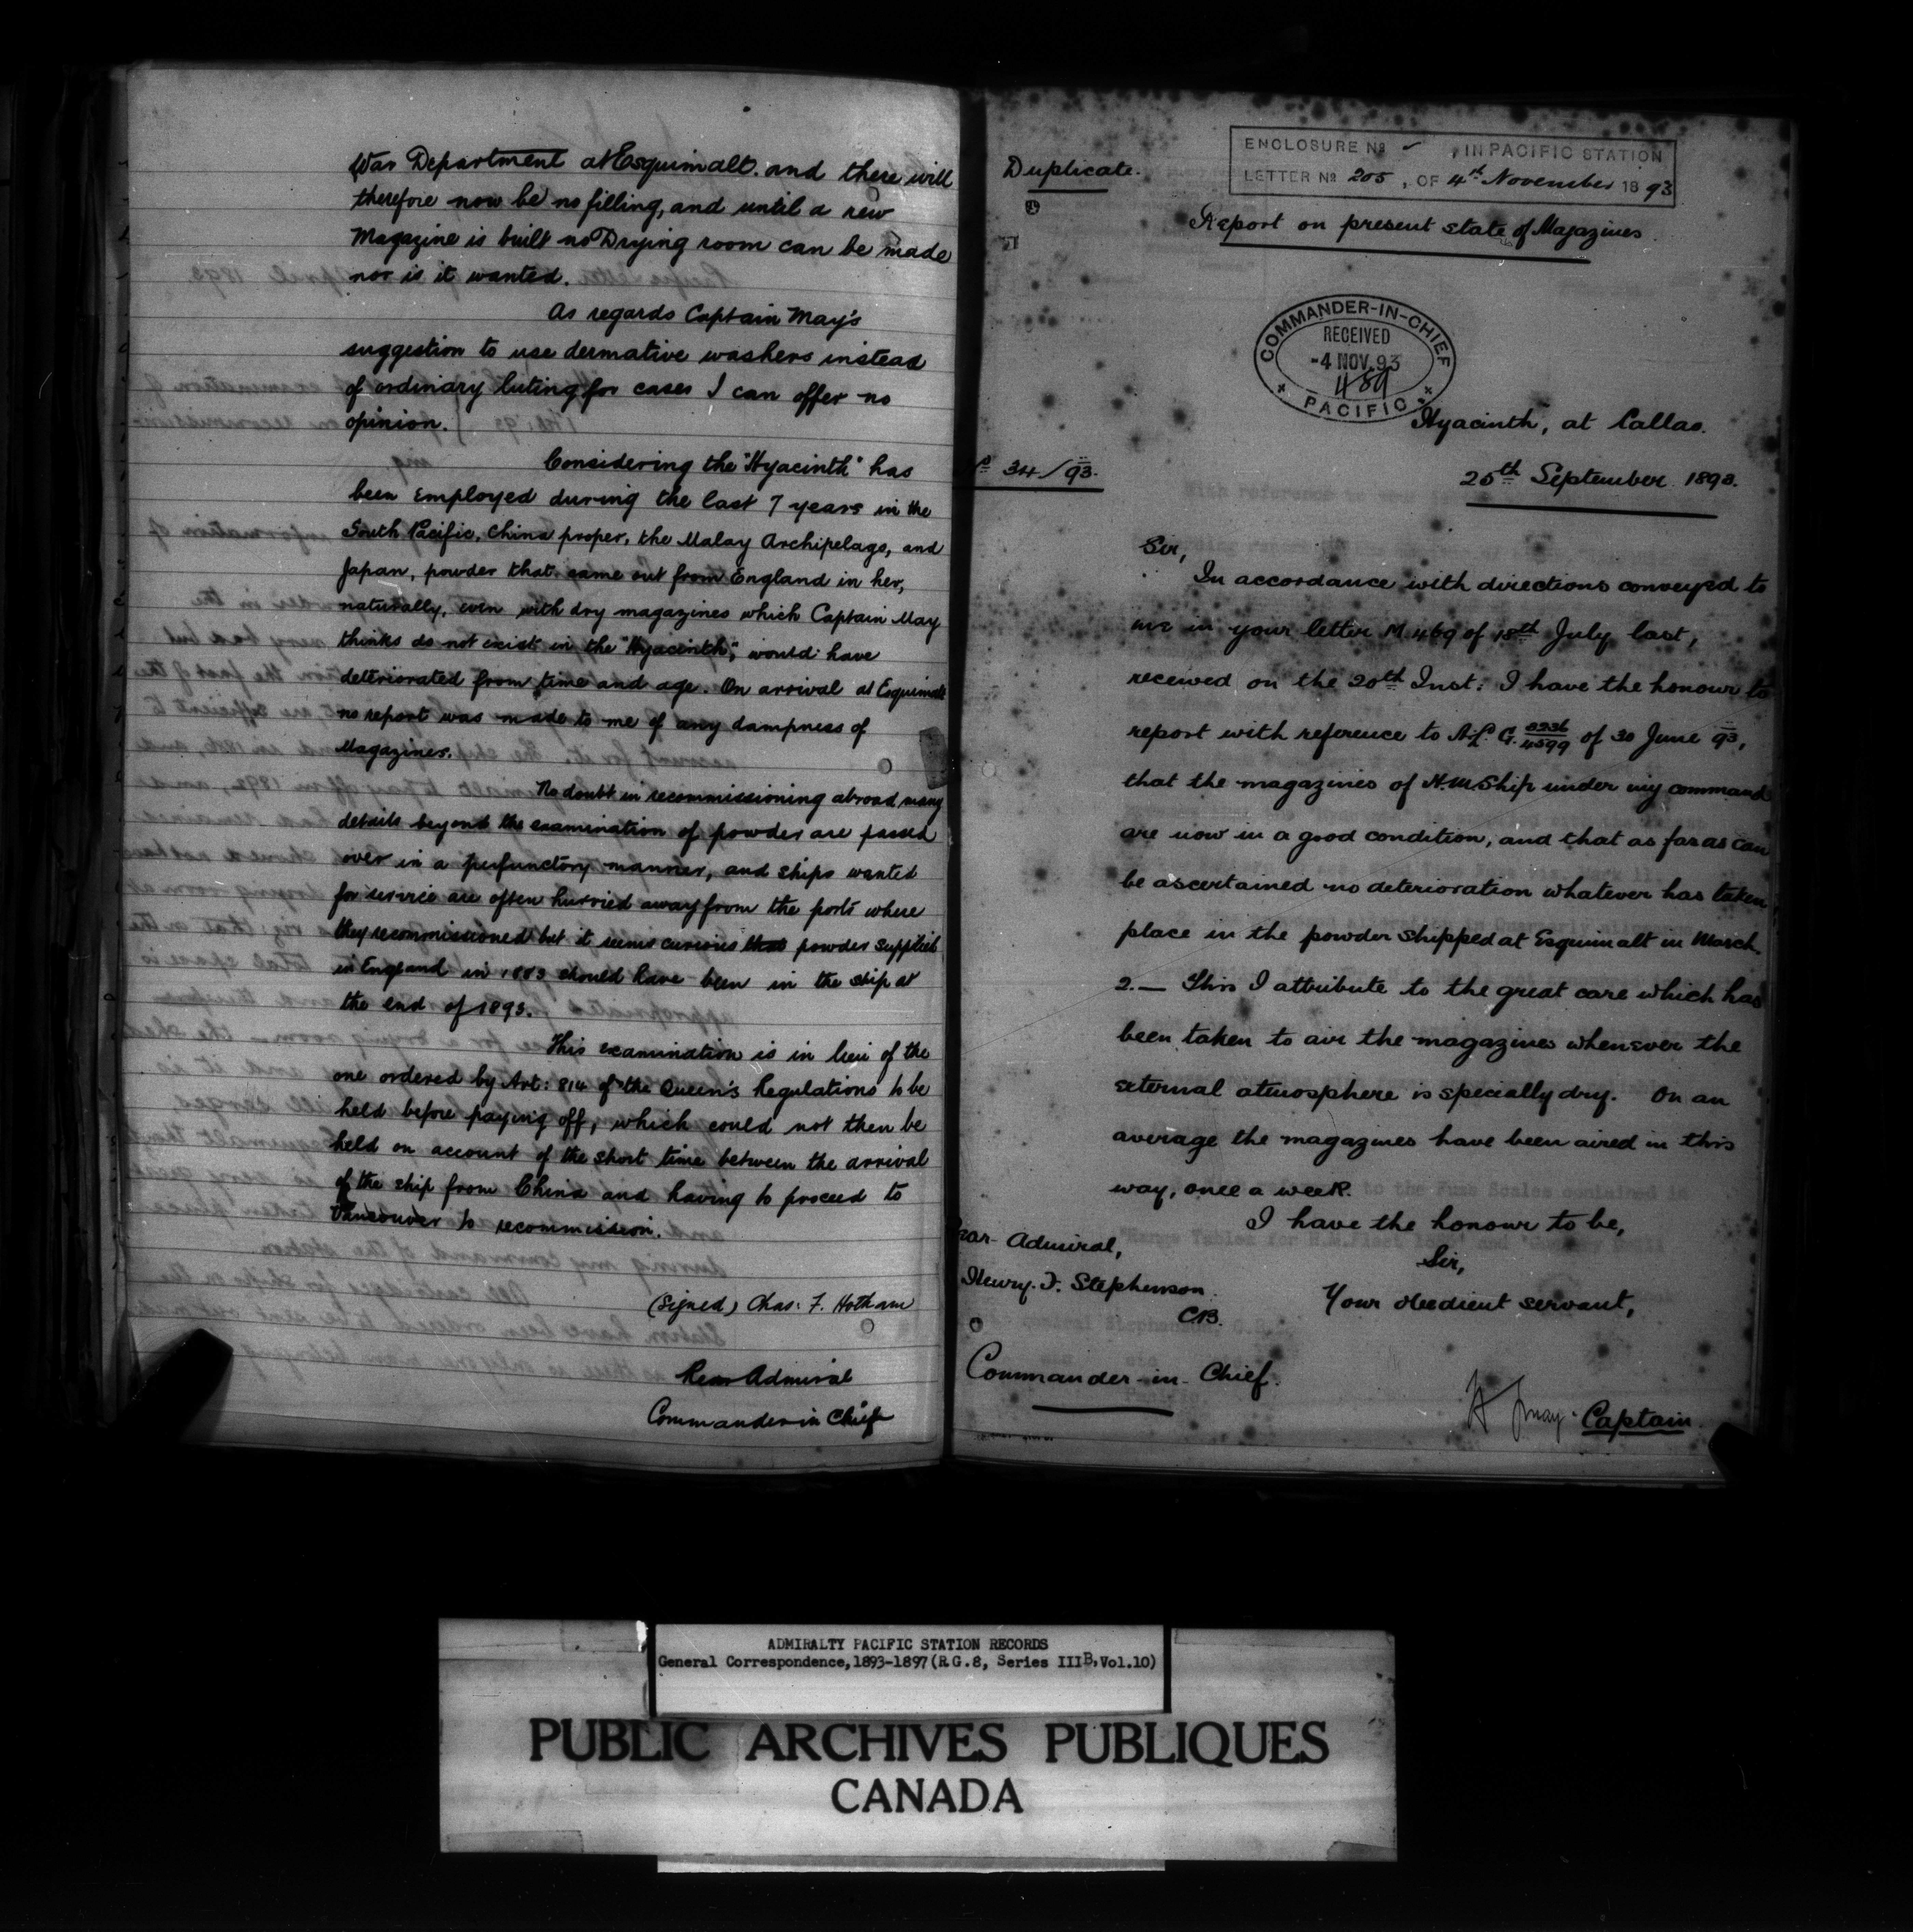 War Department at Esquimalt. and there will
therefore now be no filling, and until a new
Magazine is built no Drying room can be made
nor is it wanted.
As regards Captain May's
suggestion to use dermative washers instead
of ordinary luting for cases I can offer no
opinion.
Considering the "Hyacinth" has
been employed during the last 7 years in the
South Pacific, China proper, the Malay Archipelago, and
Japan, powder that came out from England in her,
naturally, even with dry magazines which Captain May
thinks do not exist in the "Hyacinth", would have
deteriorated from time and age. On arrival at Esquimalt
no report was made to me of any dampness of
Magazines.
No doubt in recommissioning abroad many
details beyond the examination of powder are passed
over in a perfunctory manner, and ships wanted
for service are often hurried away from the ports where
they recommissioned but it seems curious that powder supplied
in England in 1883 should have been in the ship at
the end of 1893.
This examination is in lieu of the
one ordered by Art: 814 of the Queen's Regulations to be
held before paying off, which could not then be
held on account of the short time between the arrival
of the ship from China and having to proceed to
Vancouver to recommission.
(Signed) Chas: F. Hotham
Rear Admiral
Commander in Chief
Duplicate.
ENCLOSURE No , IN PACIFIC STATION
LETTER No 205, OF 4th November 1893
Report on present state of Magazines
COMMANDER-IN-CHIEF
RECEIVED
-4 NOV.93
489
PACIFIC
Hyacinth, at Callao.
No 34/93.
25th September 1893.
Sir,
In accordance with directions conveyed to
me in your letter M 469 of 18th July last,
received on the 20th Inst: I have the honour to
report with reference to A.L. G. 4599 of 30 June 93,
that the magazines of H.M. Ship under my command
are now in a good condition, and that as far as can
be ascertained no deterioration whatever has taken
place in the powder shipped at Esquimalt in March.
2.— This I attribute to the great care which has
been taken to air the magazines whenever the
external atmosphere is specially dry. On an
average the magazines have been aired in this
way, once a week.
I have the honour to be,
Sir,
Your obedient servant,
Rear Admiral,
Henry. F. Stephenson
CB.
Commander-in-Chief.
H J May. Captain
ADMIRALTY PACIFIC STATION RECORDS
General Correspondence, 1893-1897 (R.G.8, Series IIIB, Vol.10)
PUBLIC ARCHIVES PUBLIQUES
CANADA